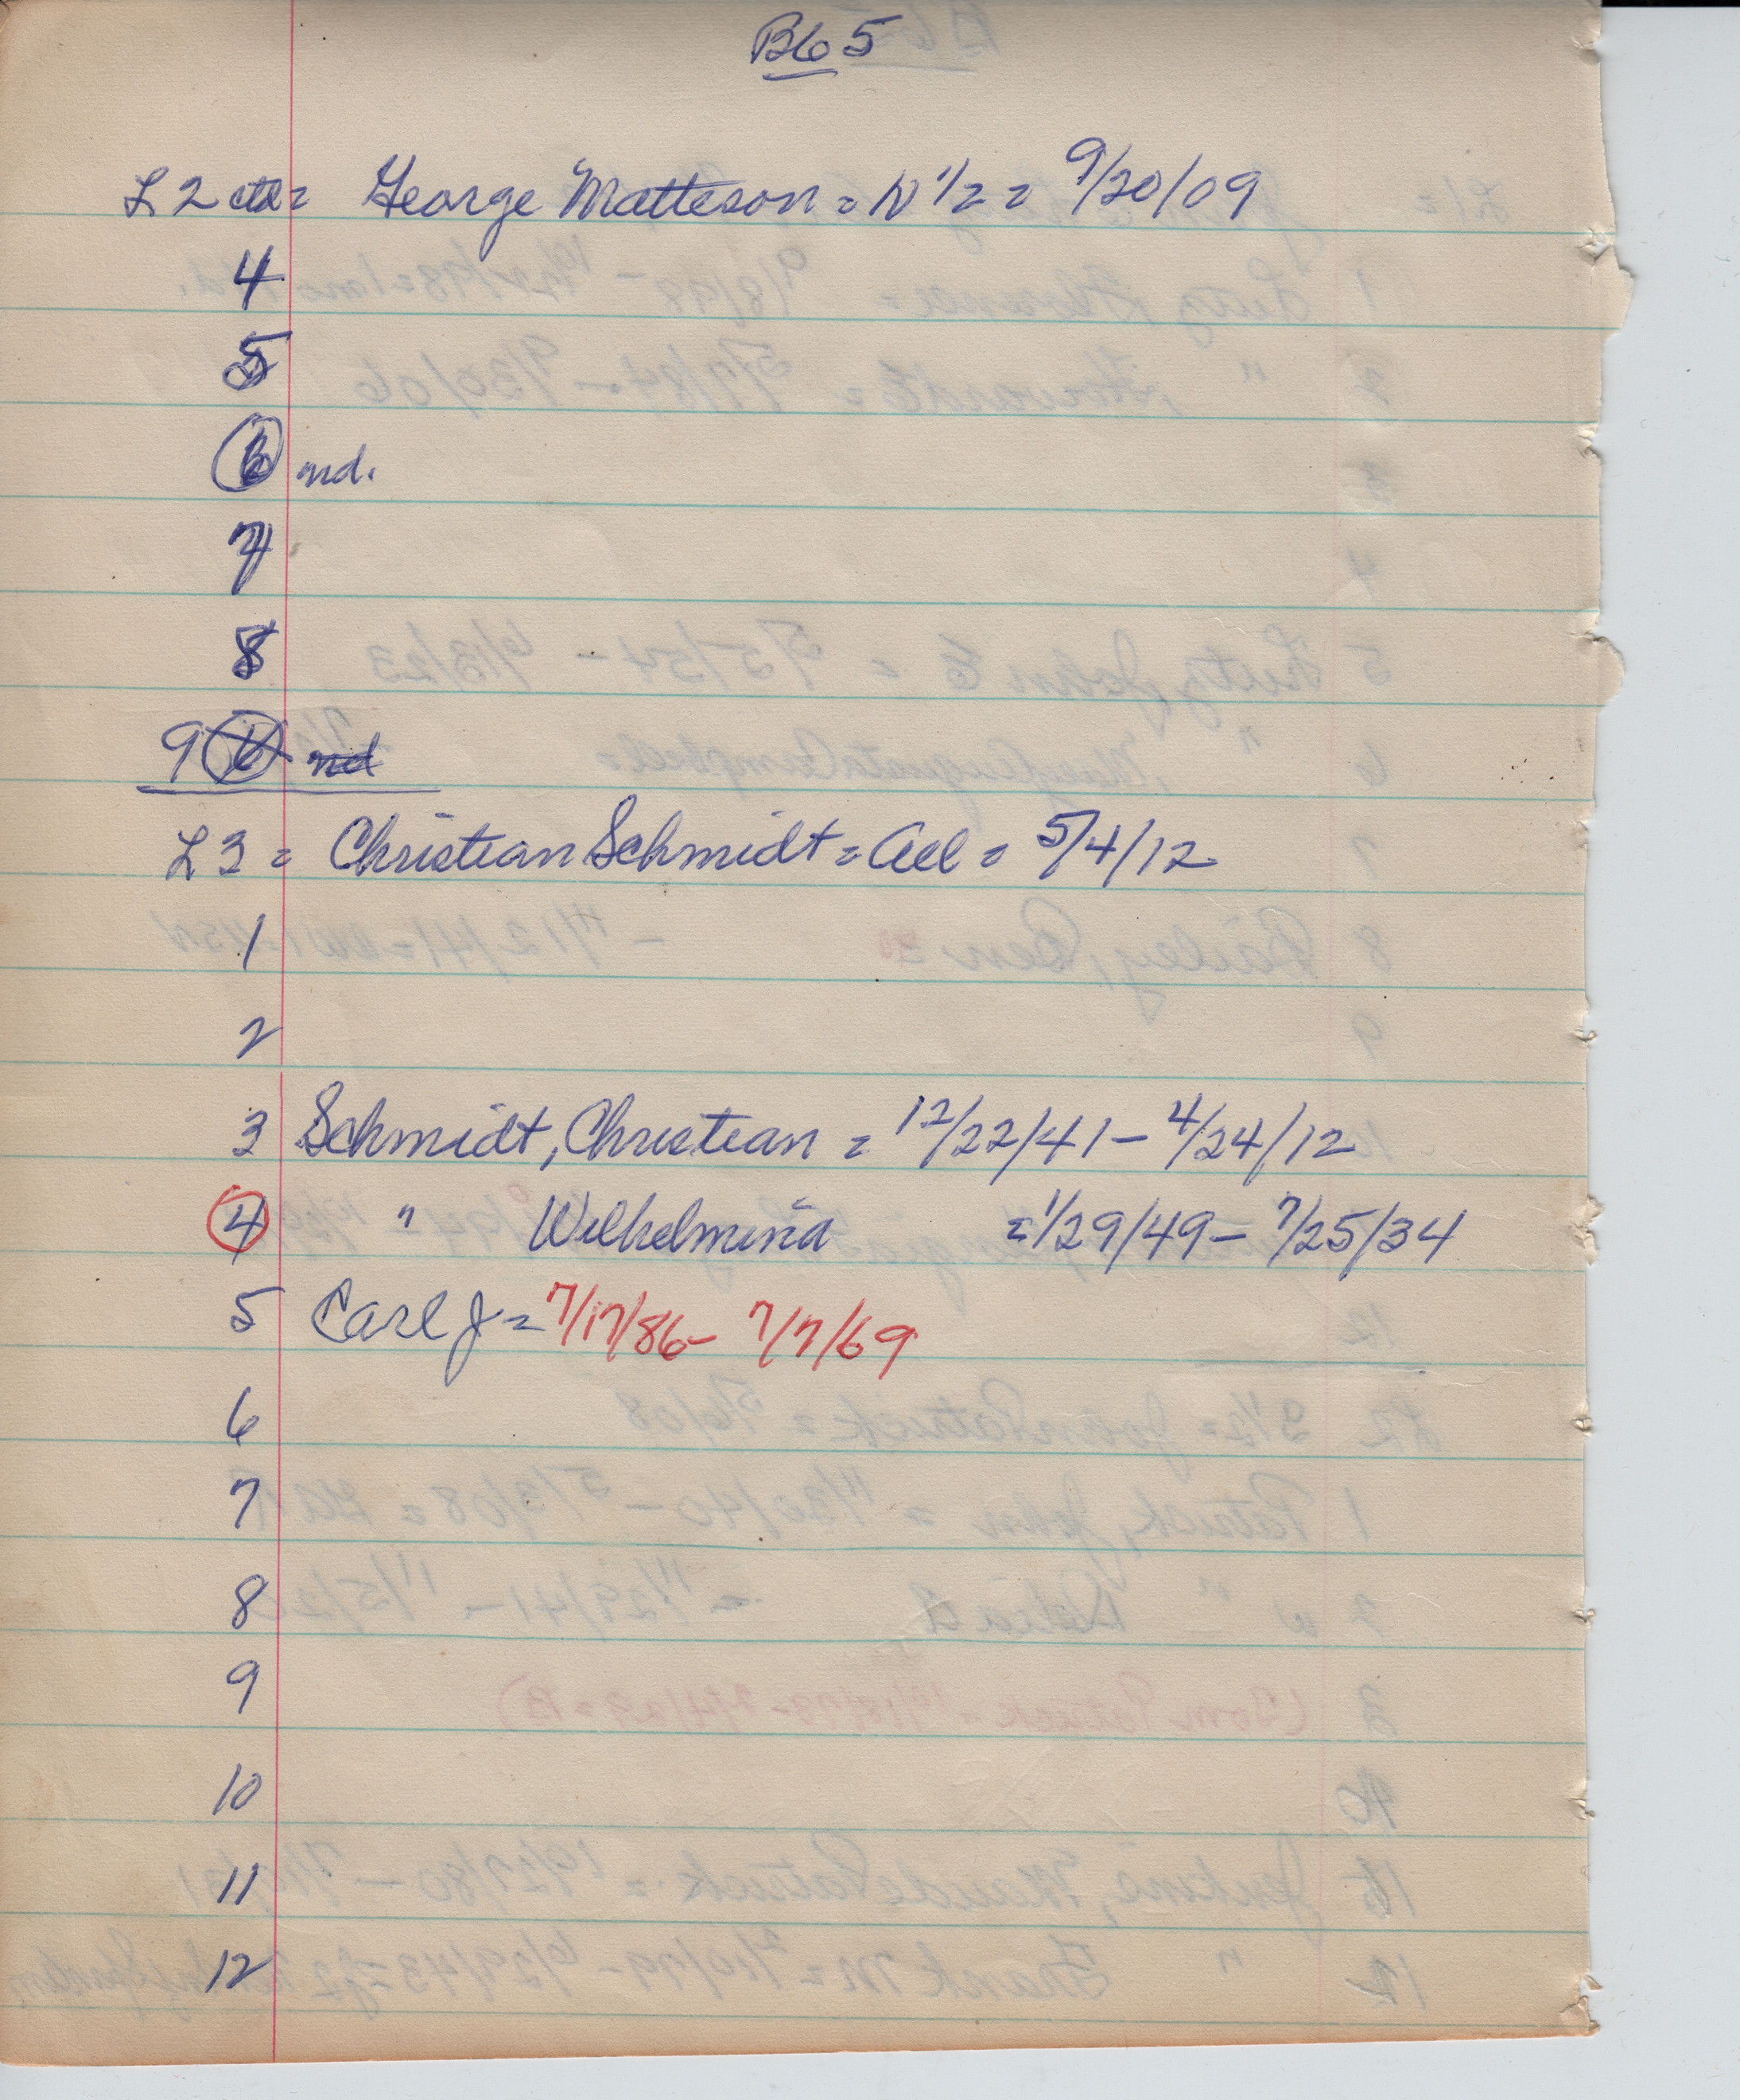 Bk 5
L2 = George Matteson = N 1/2 = 9/20/09
4
5
6 nd.
7
8
9 nd
L3 = Christian Schmidt = All = 5/4/12
1
2
3 Schmidt, Christian = 12/22/41 - 4/24/12
4 " Wilhelmina = 1/29/49 - 7/25/34
5 Carl J = 7/17/86 - 7/7/69
6
7
8
9
10
11
12